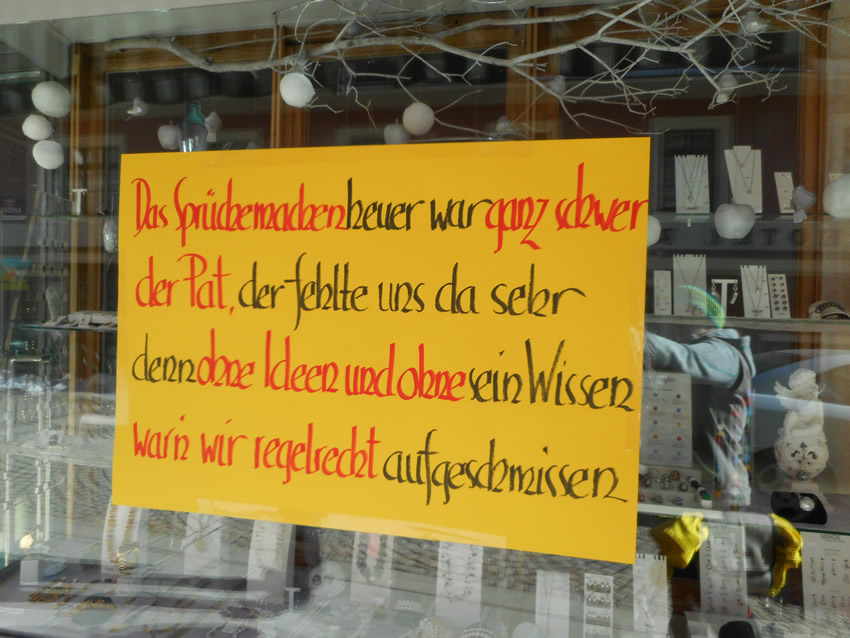 Das Sprüchemachen heuer war ganz schwer
der Pat, der fehlte uns da sehr
denn ohne Ideen und ohne sein Wissen
war'n wir regelrecht aufgeschmissen